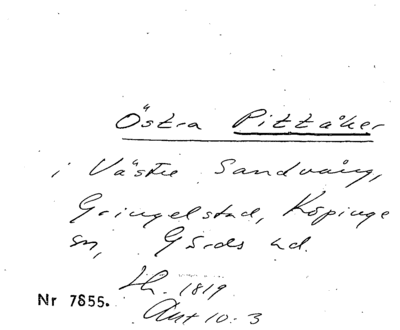 Östra Pittåker
i Västre Sandvång,
Gringelstad, Köpinge
sn, Gärds hd.
Lh. 1819
Nr 7855.
Akt 10:3